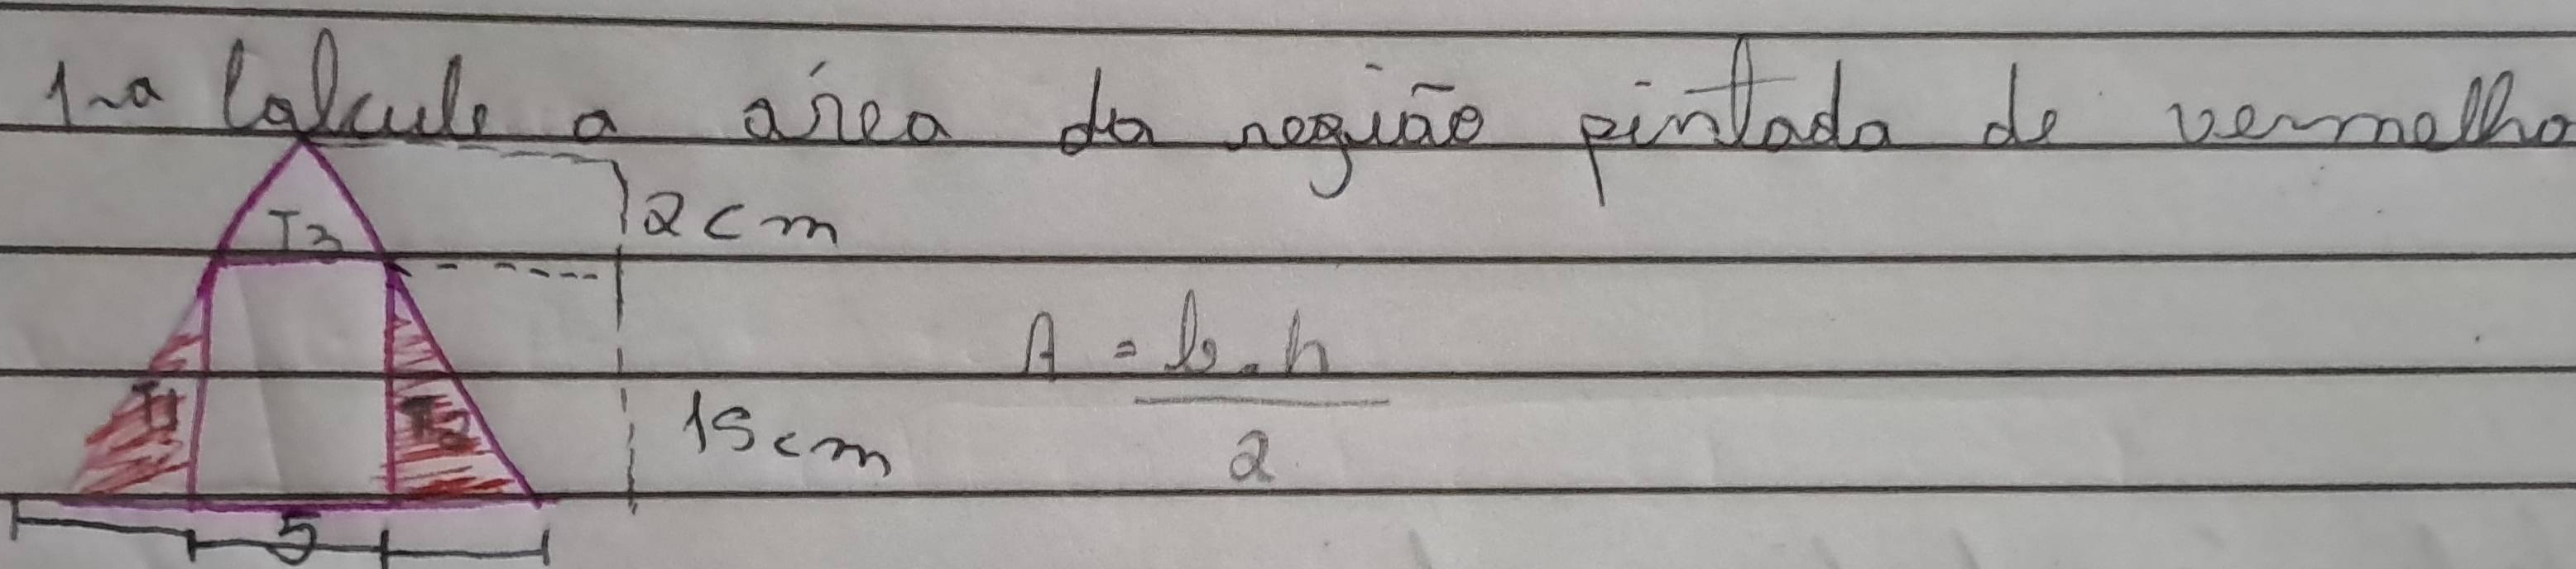 1-a Calcule a área da região pintada de vermelho
T3
2cm
A = b.h
2
T1
T2
15cm
5